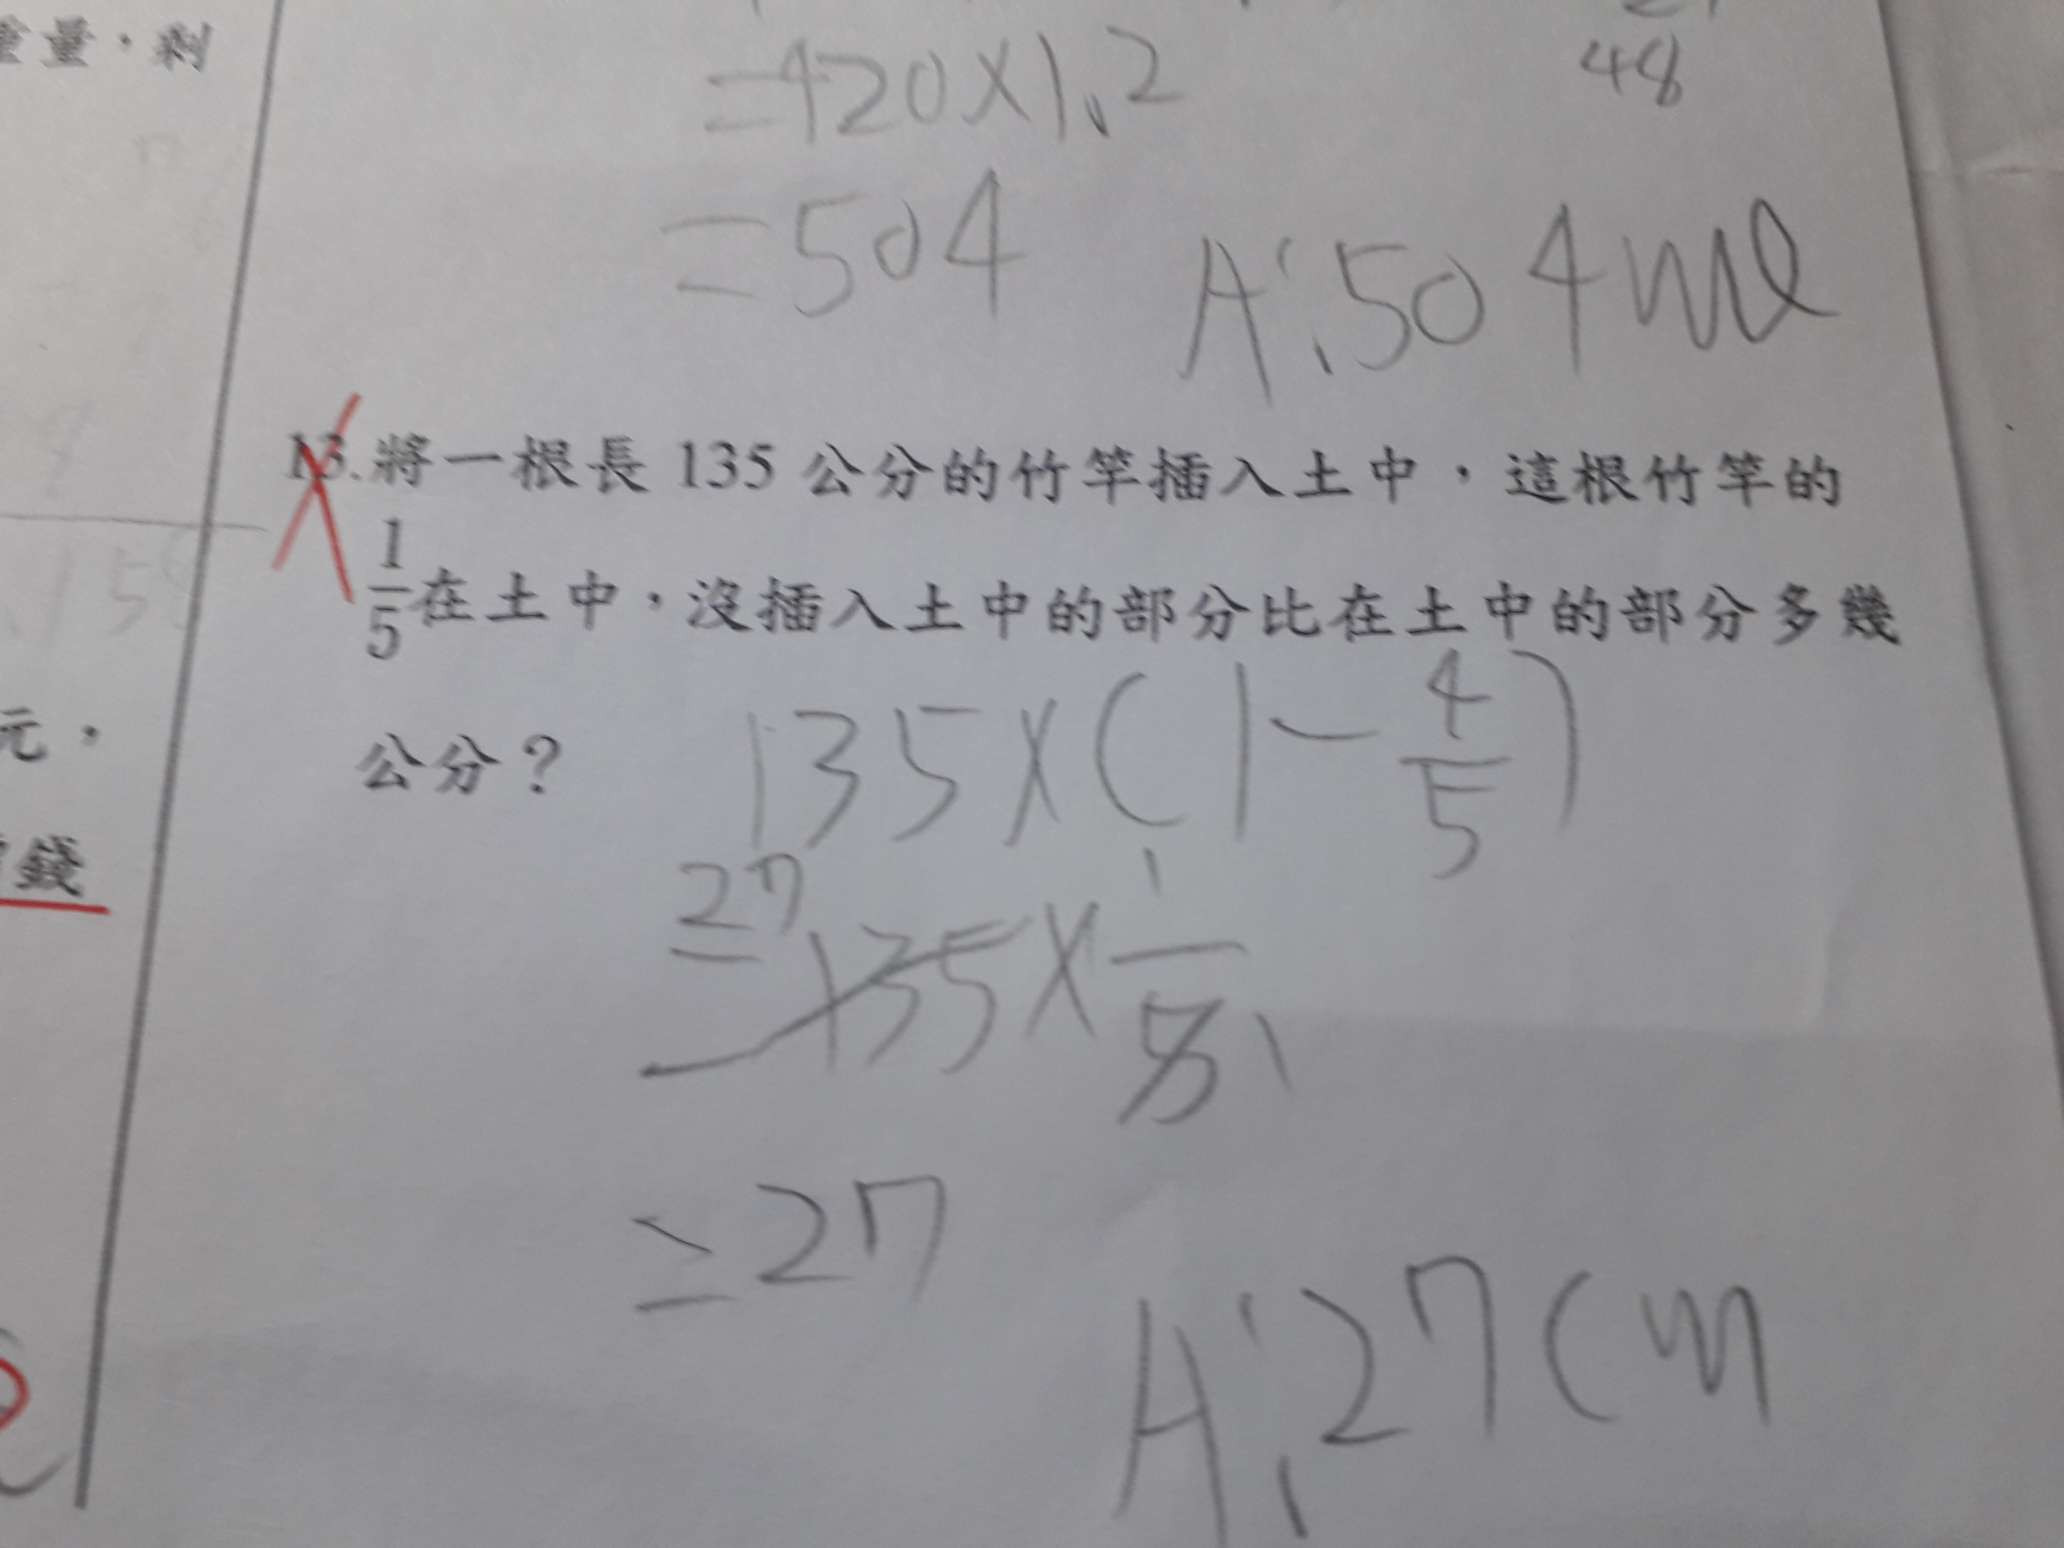 重量，剩
=420×1.2
48
=504
A:504ml
13.將一根長 135 公分的竹竿插入土中，這根竹竿的
1/5在土中，沒插入土中的部分比在土中的部分多幾
公分？
135×(1-4/5)
27 1
=135×1/5 1
=27
A:27cm
元，
錢